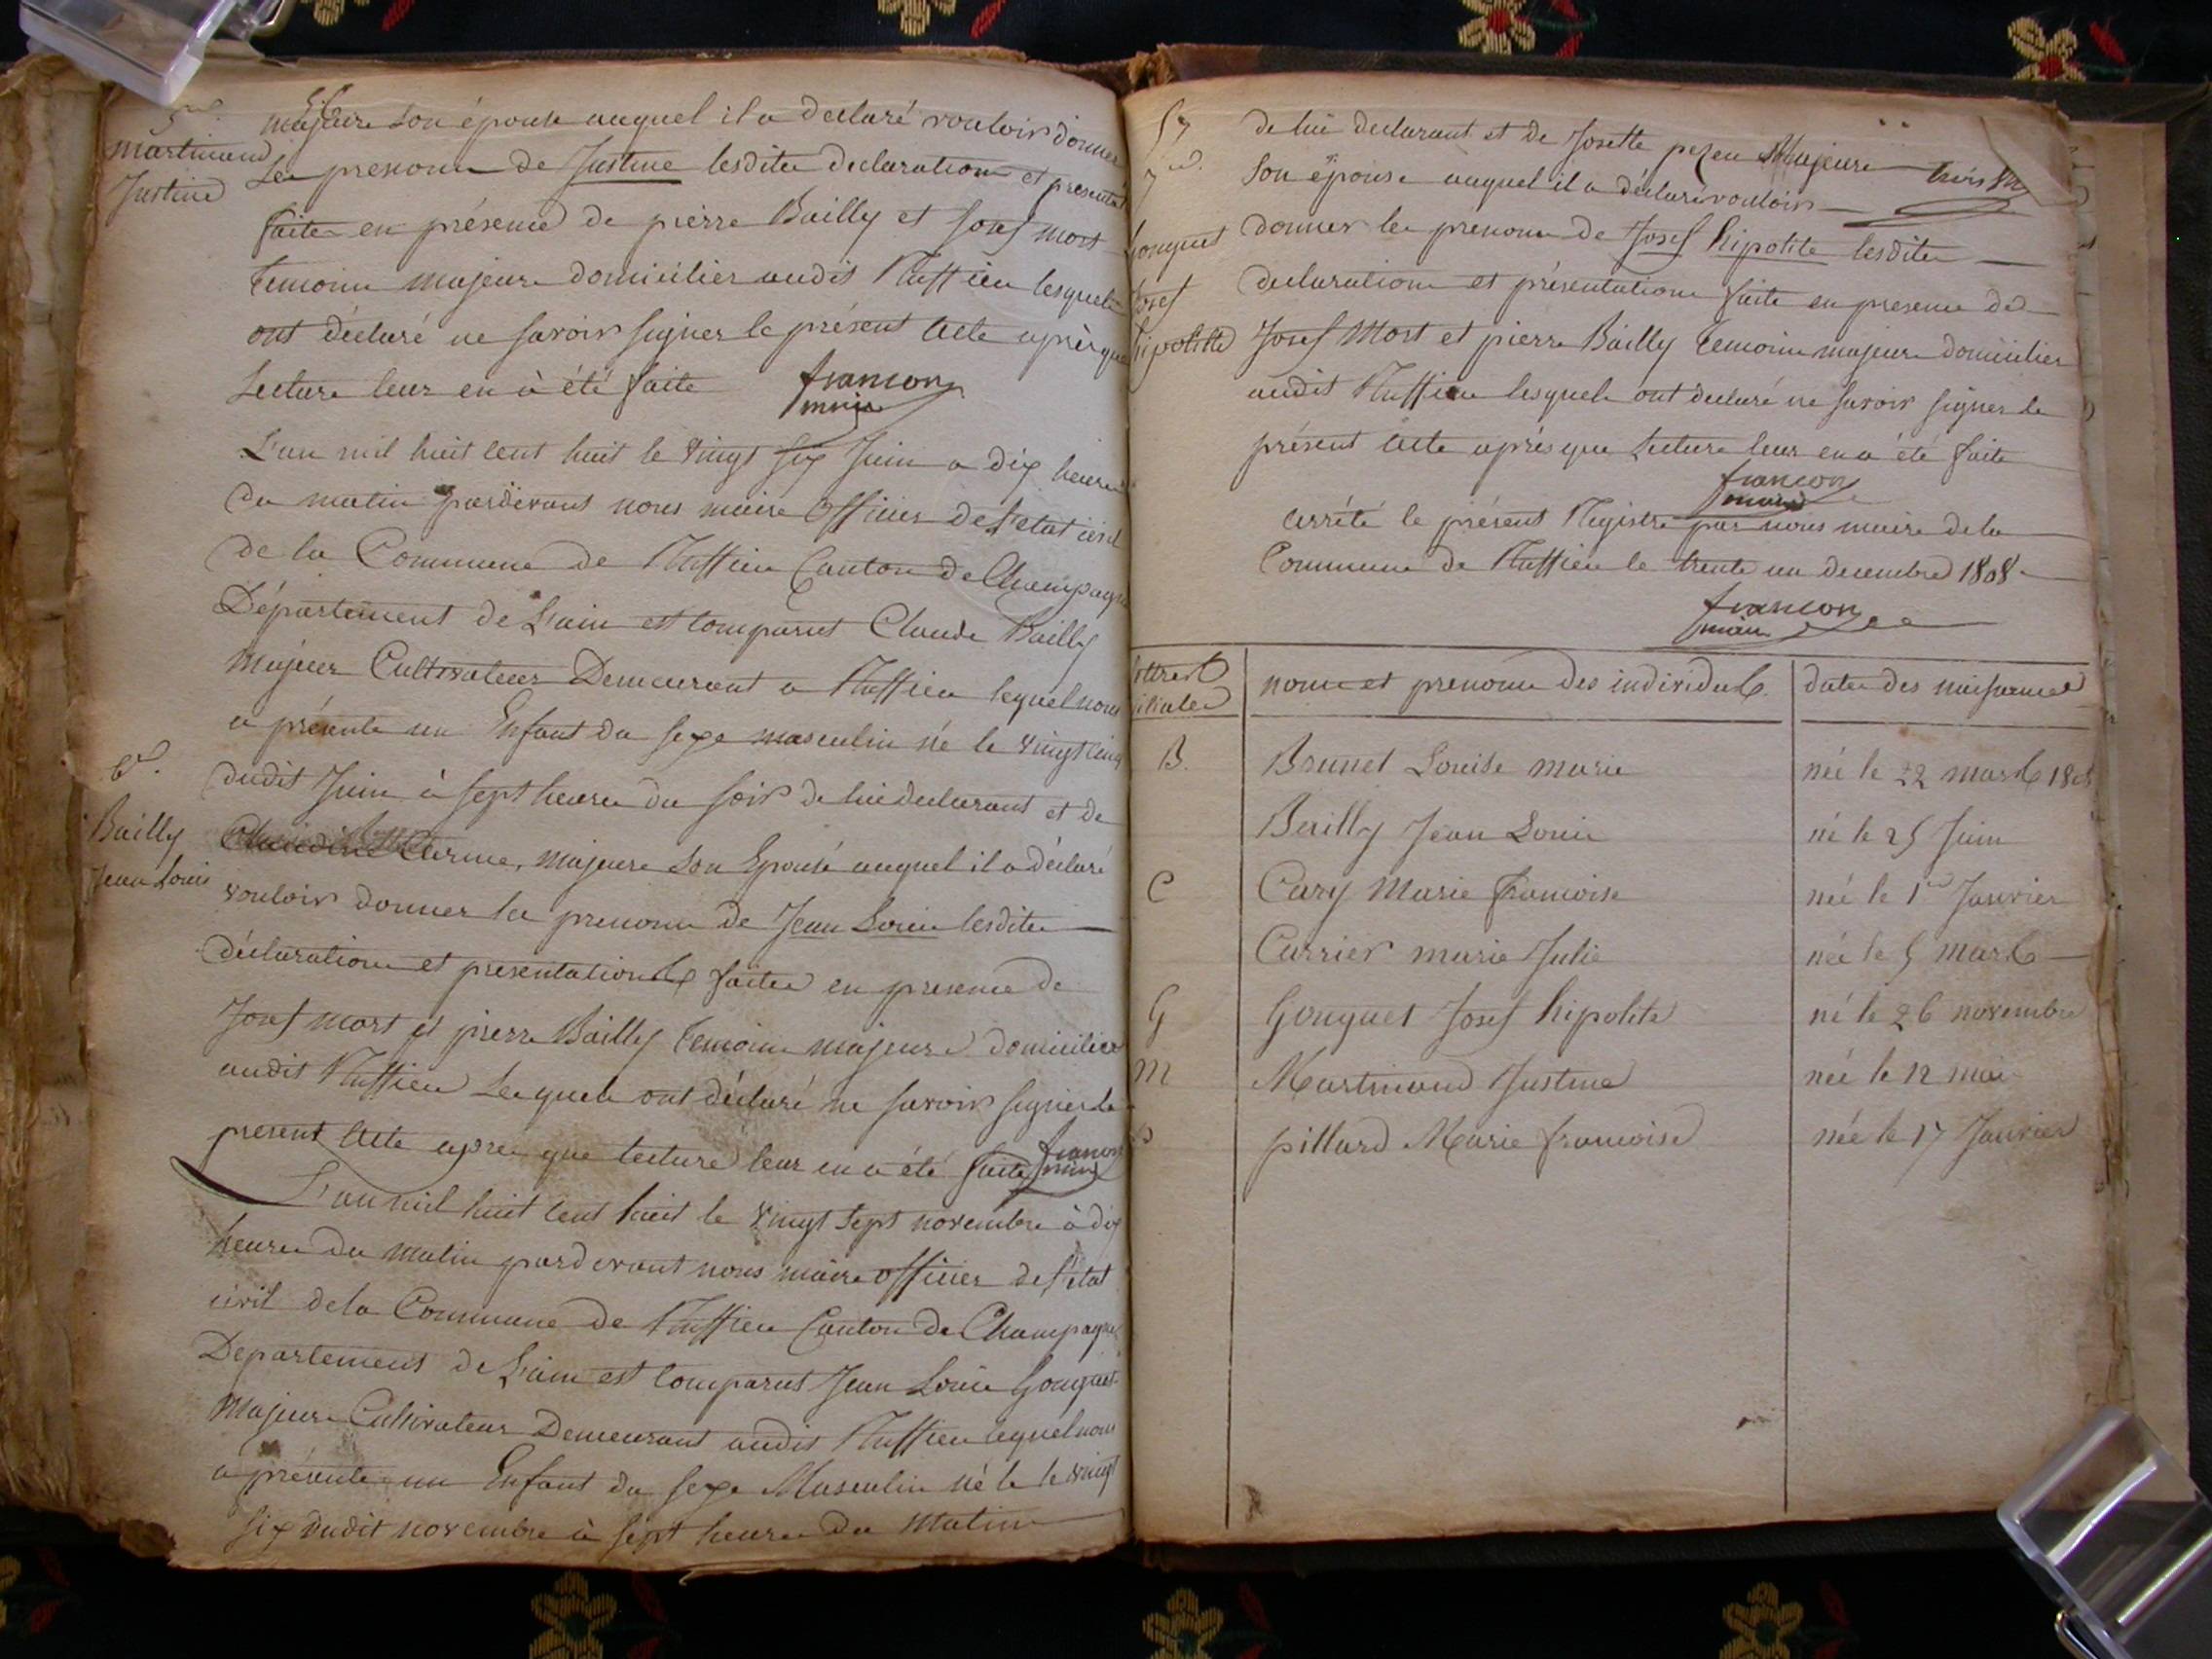 5me
Martinand
Justine
majeure son épouse auquel il a declaré vouloir donner
Les prenoms de Justine lesdites declarations et presentat
faites en présence de pierre Bailly et Josef mort
temoins majeurs domiciliés audit Ruffieu lesquels
ont déclaré ne savoir signer le présent acte après que
Lecture leur en à été faite
francon
maire
L'an mil huit cent huit le vingt six Juin a dix heures
du matin pardevant nous maire officier de l'etat civil
de la Commune de Ruffieu Canton de Champagne
Département de L'ain est comparut Claude Bailly
majeur Cultivateur Demeurant a Ruffieu lequel nous
a présenté un Enfant du sexe masculin né le vingt cinq
6me.
Bailly
Jean Louis
dudit Juin à sept heures du soir de lui declarant et de
Claudine Carme, majeure son Epouse auquel il a déclaré
vouloir donner les prenoms de Jean Louis lesdites
déclarations et presentations faites en presence de
Josef mort et pierre Bailly temoins majeurs domiciliés
audit Ruffieu Lesquels ont déclaré ne savoir signer le
present acte apres que lecture leur en a été faite
francon
maire
L'an mil huit cent huit le vingt sept novembre à dix
heures du matin pardevant nous maire officier de l'état
civil de la Commune de Ruffieu Canton de Champagne
Departement de L'ain est comparut Jean Louis Gouguet
majeur Cultivateur Demeurant audit Ruffieu lequel nous
a présenté un Enfant du sexe Masculin né le le vingt
six dudit novembre à sept heures du matin
57
7me.
Gouguet
Josef
hipolitte
de lui declarant et de Josette Majeure
Son épouse auquel il a déclaré vouloir
donner les prenoms de Josef hipolite lesdites
declarations et présentations faite en presence de
Josef Mort et pierre Bailly temoins majeurs domicilies
audit Ruffieu lesquels ont declaré ne savoir signer le
présent acte après que Lecture leur en a été faite
francon
maire
arrêté le présent Registre par nous maire de la
Commune de Ruffieu le trente un decembre 1808
francon
maire
lettres itiales noms et prenoms des individus. dates des naissances
B. Brunet Louise marie née le 22 mars 1808
Bailly Jean Louis né le 25 Juin
C Cary Marie francoise née le 1er Janvier
Carrier marie Julie née le 5 mars
G Gouguet Josef hipolite né le 26 novembre
M Martinand Justine née le 12 mai
P pillard Marie francoise née le 17 Janvier